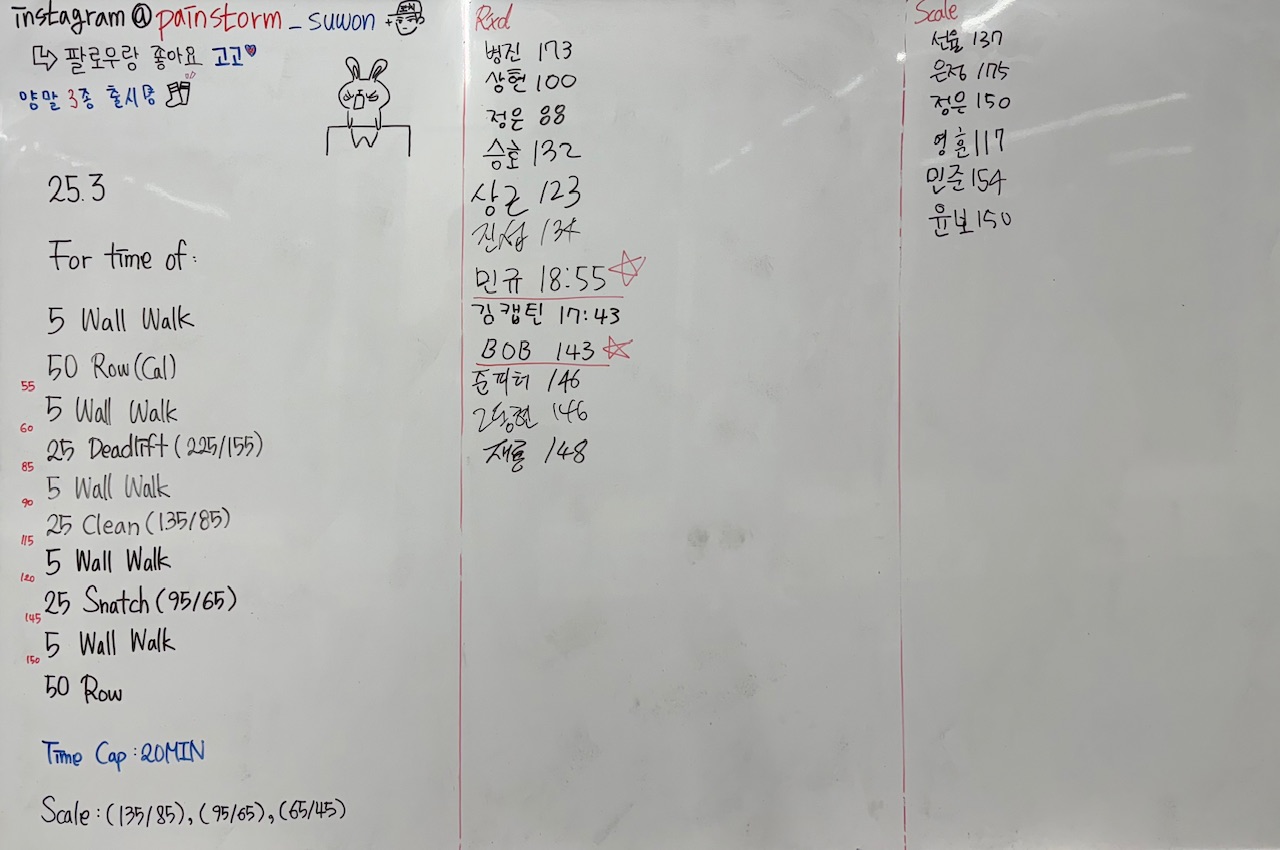 instagram @ painstorm_suwon
팔로우랑 좋아요 고고
양말 3종 출시중
25.3
For time of:
5 Wall Walk
50 Row(Cal)
55
5 Wall Walk
60
25 Deadlift (225/155)
85
5 Wall Walk
90
25 Clean (135/85)
115
5 Wall Walk
120
25 Snatch (95/65)
145
5 Wall Walk
150
50 Row
Time Cap : 20MIN
Scale : (135/85), (95/65), (65/45)
Rxd
병진 173
상현 100
정은 88
승호 132
상근 123
진섭 134
민규 18:55
김캡틴 17:43
BOB 143
준피터 146
146
재룡 148
Scale
선율 137
은정 175
정은 150
영훈 117
민준 154
윤보 150